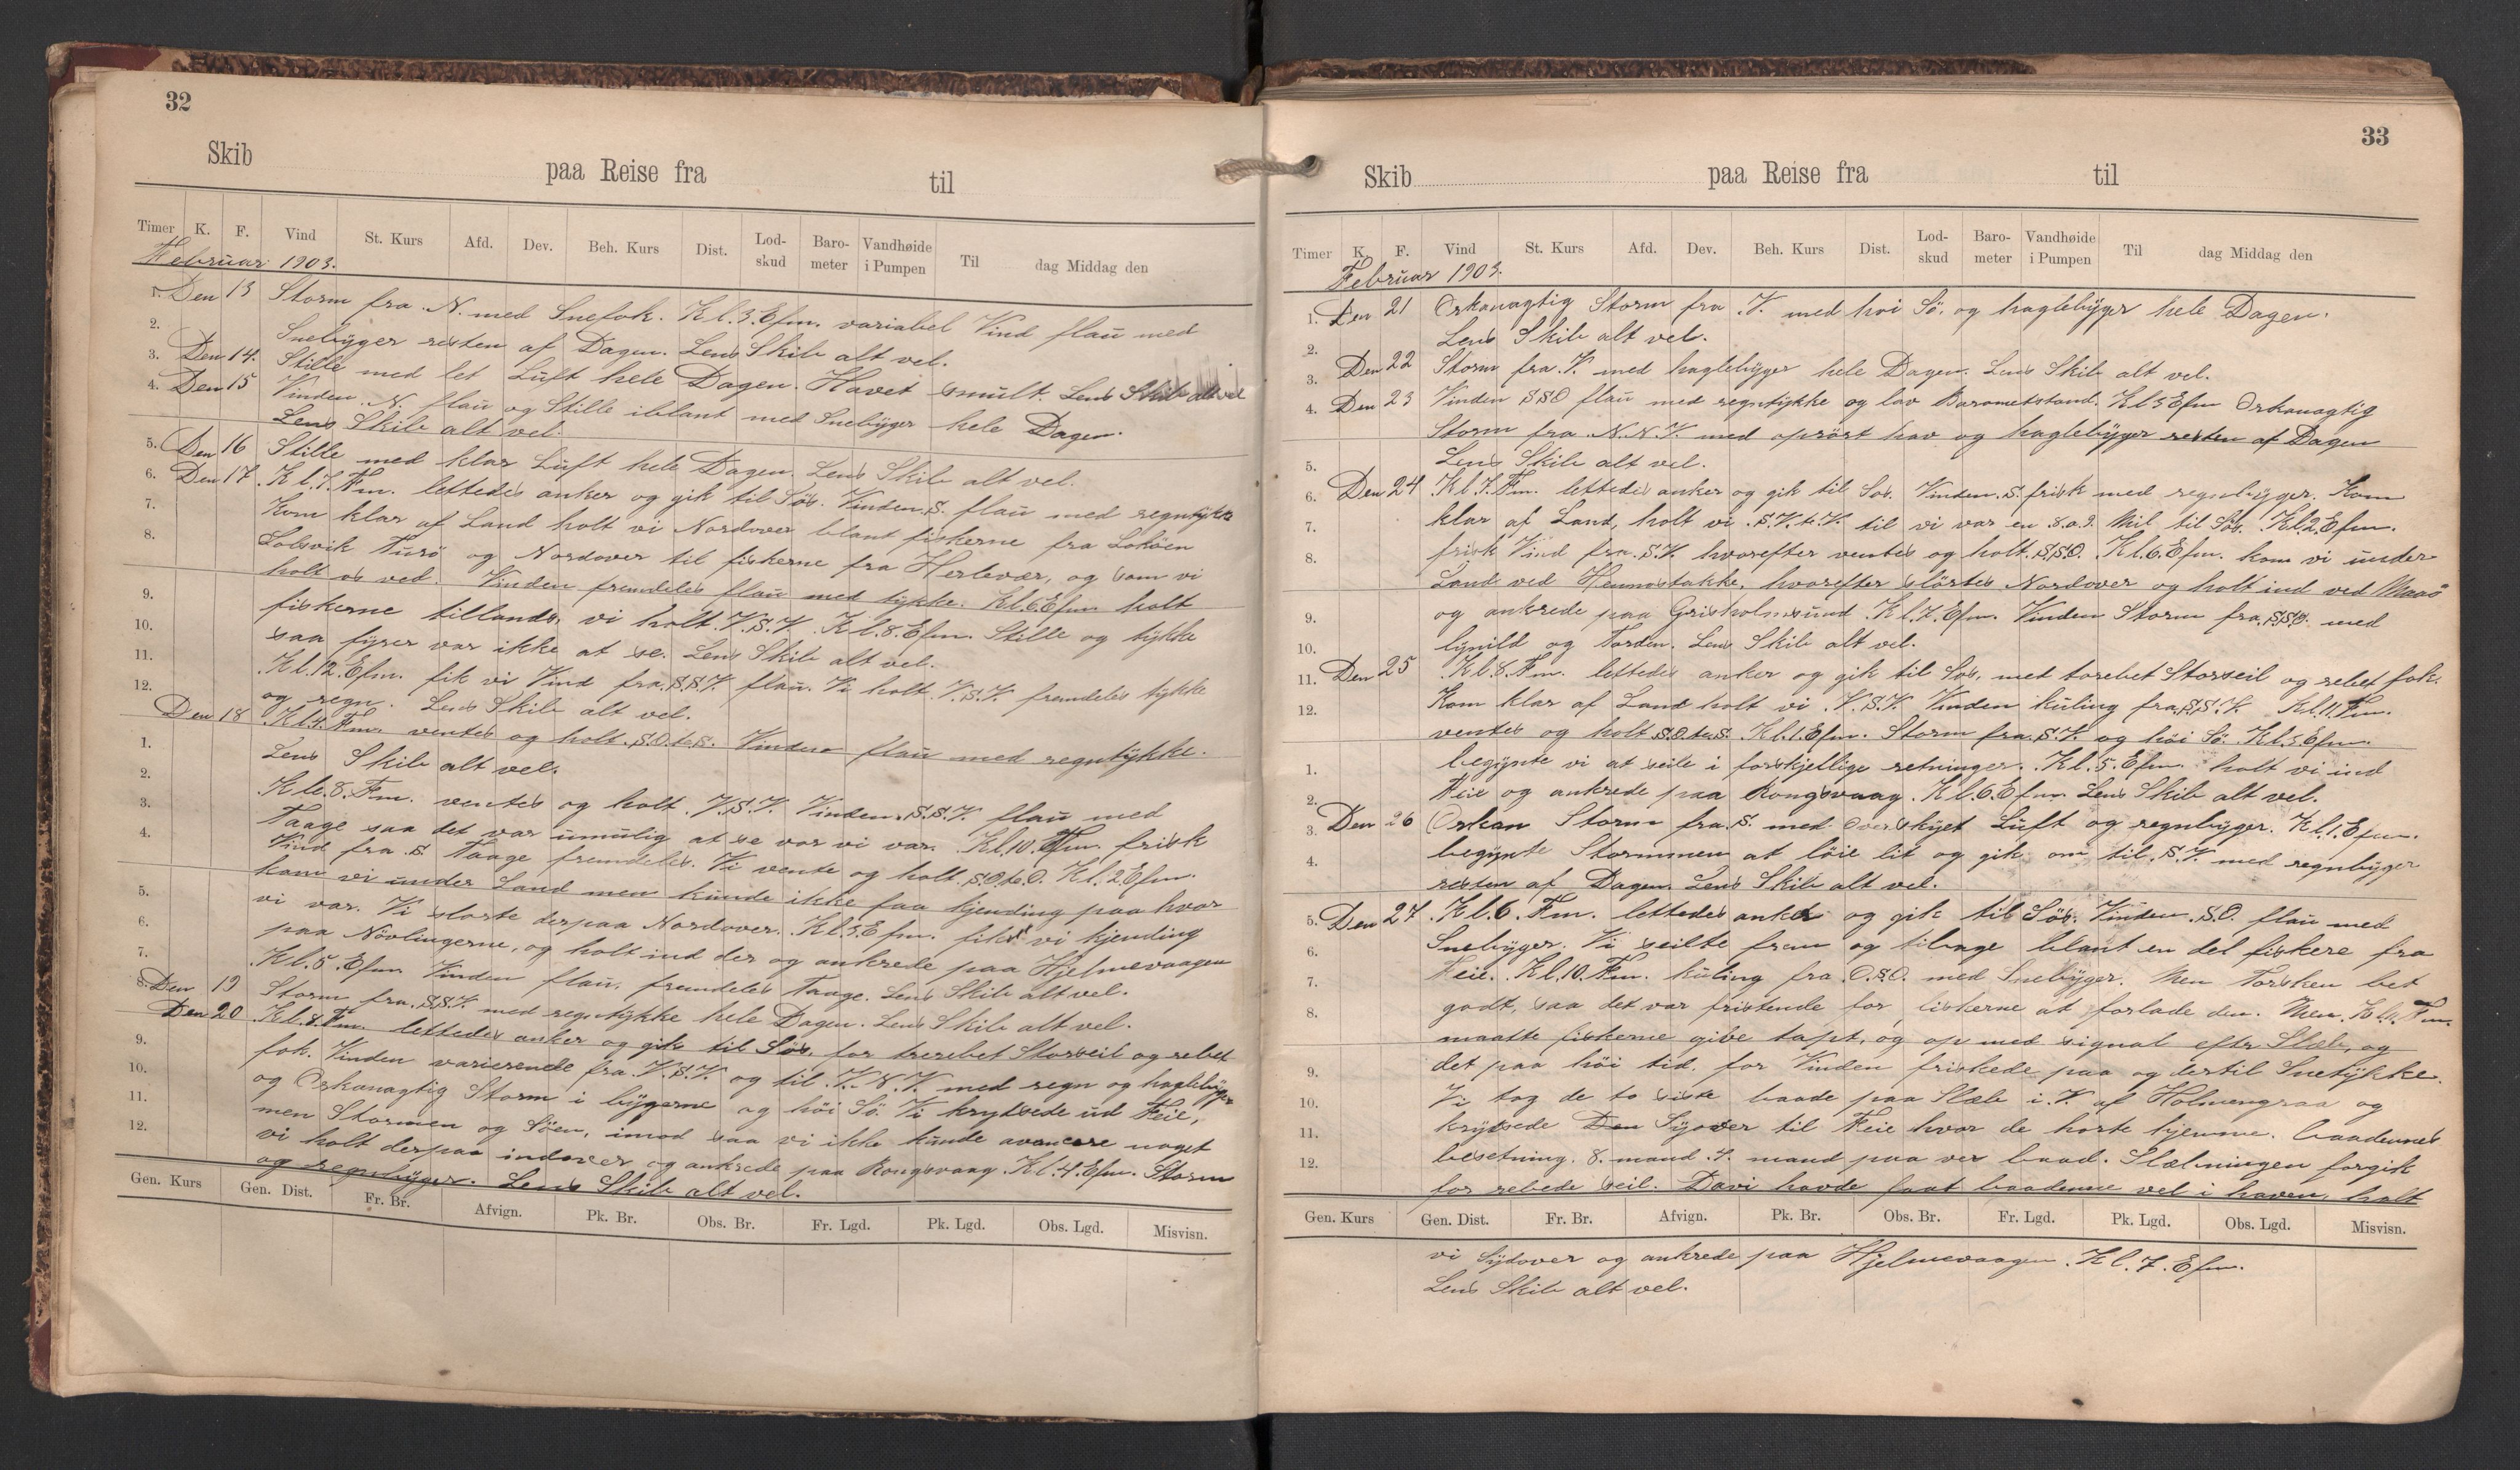 32
Skib paa Reise fra til
Timer K. F. Vind St. Kurs Afd. Dev. Beh. Kurs Dist. Lod-skud Baro-meter Vandhøide i Pumpen Til dag Middag den
Februar 1903.
1. Den 13 Storm fra N. med Snefok. Kl. 3. Efm. variabel Vind flau med
2. Snebyger resten af Dagen. Lens Skib alt vel.
3. Den 14. Stille med let Luft hele Dagen. Havet smult. Lens Skib alt vel
4. Den 15 Vinden N. flau og Stille iblant med Snebyger hele Dagen.
Lens Skib alt vel.
5. Den 16 Stille med klar Luft hele Dagen. Lens Skib alt vel.
6. Den 17. Kl. 7. Fm. lettedes anker og gik til Søs. Vinden S. flau med regntykke
7. Kom klar af Land holt vi Nordover blant fiskerne fra Lokøen
8. Solsvik Turø og Nordover til fiskerne fra Herlevær, og som vi
holt os ved. Vinden fremdeles flau med tykke. Kl. 6 Efm holt
9. fiskerne tillands, vi holt V.S.V. Kl. 8. Efm. Stille og tykke
10. saa fyrer var ikke at se. Lens Skib alt vel.
11. Kl. 12. Efm. fik vi Vind fra S.S.V. flau. Vi holt V.S.V. fremdeles tykke
12. og regn. Lens Skib alt vel.
Den 18 Kl. 4. Fm. ventes og holt S.O.t.S. Vinden flau med regntykke.
1. Lens Skib alt vel.
2. Kl. 8. Fm. ventes og holt V.S.V. Vinden S.S.V. flau med
3. Taage saa det var umulig at se vor vi var. Kl. 10. Fm. frisk
4. Vind fra S. Taage fremdeles. Vi vente og holt S.O.t.O. Kl. 2 Efm.
kom vi under Land men kunde ikke faa kjending paa hvor
5. vi var. Vi slørte derpaa Nordover. Kl. 3. Efm. fik vi kjending
6. paa Nøvlingerne, og holt ind der og ankrede paa Hjelmevaagen
7. Kl. 5. Efm. Vinden flau, fremdeles Taage. Lens Skib alt vel.
8. Den 19 Storm fra S.S.V. med regntykke hele Dagen. Lens Skib alt vel.
Den 20 Kl. 8. Fm. lettedes anker og gik til Søs, for trerebet Storseil og rebet
9. fok. Vinden varierende fra V.S.V. og til V.N.V. med regn og haglebyger
10. og Orkanagtig Storm i bygerne og høi Sø. Vi krydsede ud Feie,
11. men Stormen og Søen, imod saa vi ikke kunde avancere noget
12. vi holt derpaa indover og ankrede paa Rongsvaag. Kl. 4. Efm. Storm
og regnbyger. Lens Skib alt vel.
Gen. Kurs Gen. Dist. Fr. Br. Afvign. Pk. Br. Obs. Br. Fr. Lgd. Pk. Lgd. Obs. Lgd. Misvisn.
33
Skib paa Reise fra til
Timer K. F. Vind St. Kurs Afd. Dev. Beh. Kurs Dist. Lod-skud Baro-meter Vandhøide i Pumpen Til dag Middag den
Februar 1903.
1. Den 21 Orkanagtig Storm fra V. med høi Sø, og haglebyger hele Dagen.
2. Lens Skib alt vel.
3. Den 22 Storm fra V. med haglebyger hele Dagen. Lens Skib alt vel.
4. Den 23 Vinden SSO flau med regntykke og lav Barometstand. Kl 3 Efm Orkanagtig
Storm fra N.N.V. med oprørt hav og haglebyger resten af Dagen
5. Lens Skib alt vel.
6. Den 24 Kl 7. Fm. lettedes anker og gik til Søs. Vinden S. frisk med regnbyger. Kom
7. klar af Land, holt vi S.V.t.V. til vi var en 8. a 9. Mil til Søs. Kl. 2. Efm.
8. frisk Vind fra S.V. hvorefter ventes og holt S.S.O. Kl. 6. Efm. kom vi under
Land ved Hennøstakke, hvorefter slørtes Nordover og holt ind ved
9. og ankrede paa Grisholmsund Kl. 7. Efm. Vinden Storm fra SSO. med
10. lynild og Torden. Lens Skib alt vel.
11. Den 25 Kl. 8. Fm. lettedes anker og gik til Søs, med torebet Storseil og rebet fok.
12. Kom klar af Land holt vi V.S.V. Vinden kuling fra S.S.V. Kl. 11. Fm.
ventes og holt S.O.t.S. Kl. 1. Efm. Storm fra S.V. og høi Sø. Kl. 3 Efm.
1. begynte vi at seile i forskjellige retninger. Kl. 5. Efm. holt vi ind
2. Feie og ankrede paa Rongsvaag. Kl. 6. Efm Lens Skib alt vel.
3. Den 26 Orkan Storm fra S. med overskyet Luft og regnbyger. Kl. 1. Efm.
4. begynte Stormmen at løie lit og gik om til S.V. med regnbyger
resten af Dagen. Lens Skib alt vel.
5. Den 27. Kl. 6. Fm. lettedes anker og gik til Søs. Vinden S.O. flau med
6. Snebyger. Vi seilte frem og tilbage blant en del fiskere fra
7. Feie. Kl. 10. Fm. kuling fra O.S.O. med Snebyger. Men Torsken bet
8. godt, saa det var fristende for fiskerne at forlade den. Men Kl. 11. Fm.
maatte fiskerne give tapt, og op med signal efter Slæb, og
9. det paa høi tid. for Vinden friskede paa og dertil Snetykke.
10. Vi tog de to siste baade paa Slæb i V. af Holmengraa og
11. krydsede Den Syover til Feie hvor de hørte hjemme. baadennes
12. besetning. 8. mand. 4. mand paa ver baad. Slæbningen forgik
for rebede seil. Davi havde faat baadenne vel i haven, holt
Gen. Kurs Gen. Dist. Fr. Br. Afvign. Pk. Br. Obs. Br. Fr. Lgd. Pk. Lgd. Obs. Lgd. Misvisn.
vi Sydover og ankrede paa Hjelmevaagen. Kl. 7. Efm.
Lens Skib alt vel.